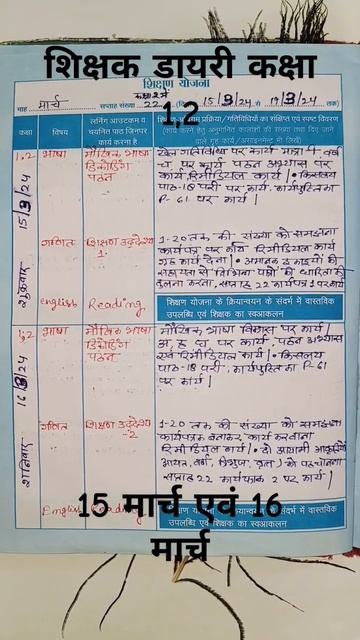 शिक्षक डायरी कक्षा 1,2
शिक्षण योजना
कक्षा 2 में
माह मार्च सप्ताह संख्या 22 15/3/24 से 19/3/24 तक)
कक्षा विषय लर्निंग आउटकम व चयनित पाठ जिनपर कार्य करना है
(कार्य करने हेतु अनुमानित कालांशों की संख्या तथा दिए जाने वाले गृह कार्य/असाइनमेन्ट भी लिखें)
शुक्रवार 15/3/24
1,2 भाषा मौखिक भाषा डिकोडिंग पठन
खेल गतिविधि पर कार्य मात्रा वर्ण
पर कार्य पठन अभ्यास पर
कार्य रिमीडियल कार्य। • किसलय
पाठ-18 पर कार्य, कार्यपुस्तिका
P-61 पर कार्य।
गणित शिक्षण उद्देश्य 1.
1-20 तक की संख्या को समझना
कार्यपत्रक पर कार्य रिमीडियल कार्य
गृह कार्य देना। • अमानक इकाइयों की
सहायता से विभिन्न पात्रों की धारिता की
तुलना करना, सप्ताह 22 कार्यपत्रक 1 पर कार्य
English Reading
शिक्षण योजना के क्रियान्वयन के संदर्भ में वास्तविक
उपलब्धि एवं शिक्षक का स्वआकलन
शनिवार 16/3/24
1,2 भाषा मौखिक भाषा डिकोडिंग पठन
मौखिक भाषा विकास पर कार्य।
पर कार्य पठन अभ्यास
एवं रिमीडियल कार्य। • किसलय
पाठ-18 कार्यपुस्तिका P-61
पर कार्य।
गणित शिक्षण उद्देश्य -2
1-20 तक की संख्या को समझना
कार्यपत्रक कार्य करवाना
रिमीडियल कार्य। • दो आयामी आकृतियों
आयत, वर्ग, त्रिभुज, वृत्त को पहचानना
सप्ताह 22 कार्यपत्रक 2 पर कार्य।
English Reading
शिक्षण योजना के क्रियान्वयन के संदर्भ में वास्तविक
उपलब्धि एवं शिक्षक का स्वआकलन
15 मार्च एवं 16
मार्च